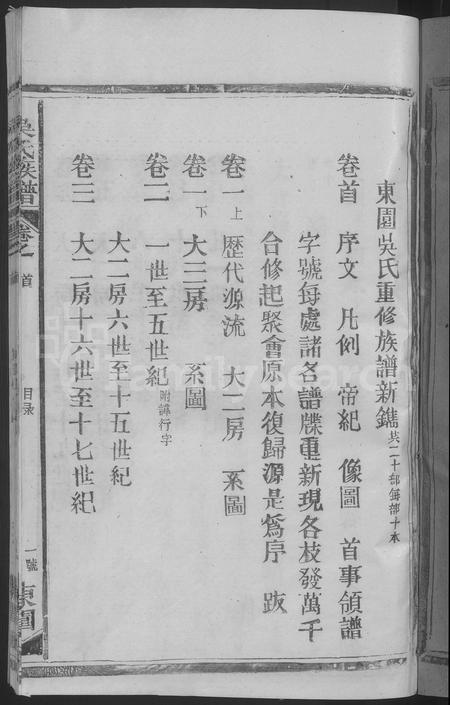 東園吳氏重修族譜新鐫 共二十部每部十本
卷首 序文 凡例 帝紀 像圖 首事領譜
字號每處諸名譜牒重新現各枝發萬千
合修起聚會原本復歸源是爲序 跋
卷一上 歷代源流 大二房 系圖
卷一下 大三房 系圖
卷二 一世至五世紀 附諱行字
大二房六世至十五世紀
卷三 大二房十六世至十七世紀
吳氏族譜 卷之首 目录 一號 東園
FamilySearch